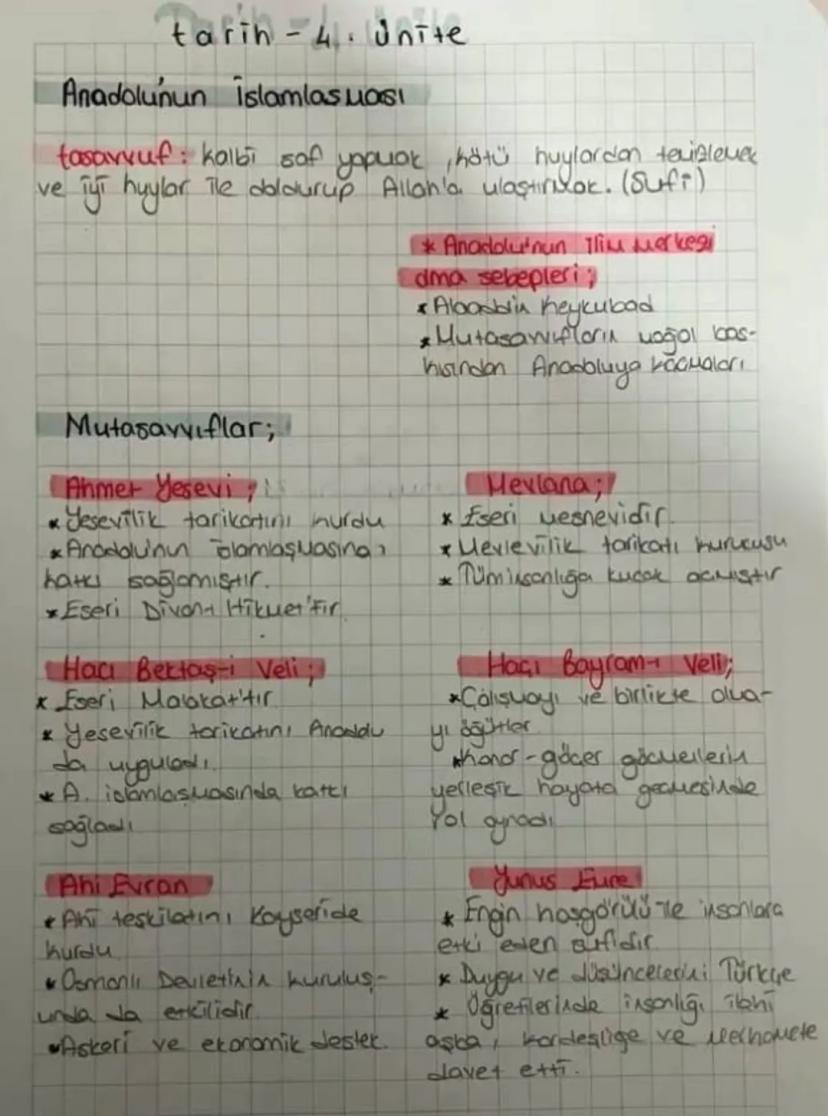 tarih - 4. ünite
Anadolu'nun islamlaşması
tasavvuf: kalbi saf yapmak, kötü huylardan temizlemek
ve iyi huylar ile doldurup Allah'a ulaştırmak. (Sufi)
* Anadolu'nun ilim merkezi
olma sebepleri;
* Alaaddin Keykubad
* Mutasavvıfların moğol bas-
kısından Anadoluya kaçmaları
Mutasavvıflar;
Ahmet Yesevi;
* Yesevilik tarikatını kurdu
* Anadolu'nun islamlaşmasına
katkı sağlamıştır.
* Eseri Divan-ı Hikmet'tir.
Mevlana;
* Eseri mesnevidir.
* Mevlevilik tarikatı kurucusu
* Tüm insanlığa kucak açmıştır
Hacı Bektaş-i Veli;
* Eseri Malakat'tır
* Yesevilik tarikatını Anadolu
da uyguladı.
* A. islamlaşmasında katkı
sağladı
Hacı Bayram-ı Veli;
* Çalışmayı ve birlikte olma-
yı öğütler
* Konar-göçer göçmenlerin
yerleşik hayata geçmesinde
rol oynadı
Ahi Evran
* Ahi teşkilatını Kayseride
kurdu
* Osmanlı Devletinin kuruluş-
unda da etkilidir.
* Askeri ve ekonomik destek.
Yunus Emre
* Engin hoşgörülü ile insanlara
etki eden sufidir
* Duygu ve düşüncelerini Türkçe
* Öğretilerinde insanlığı ilahi
aşka, kardeşliğe ve merhamete
davet etti.